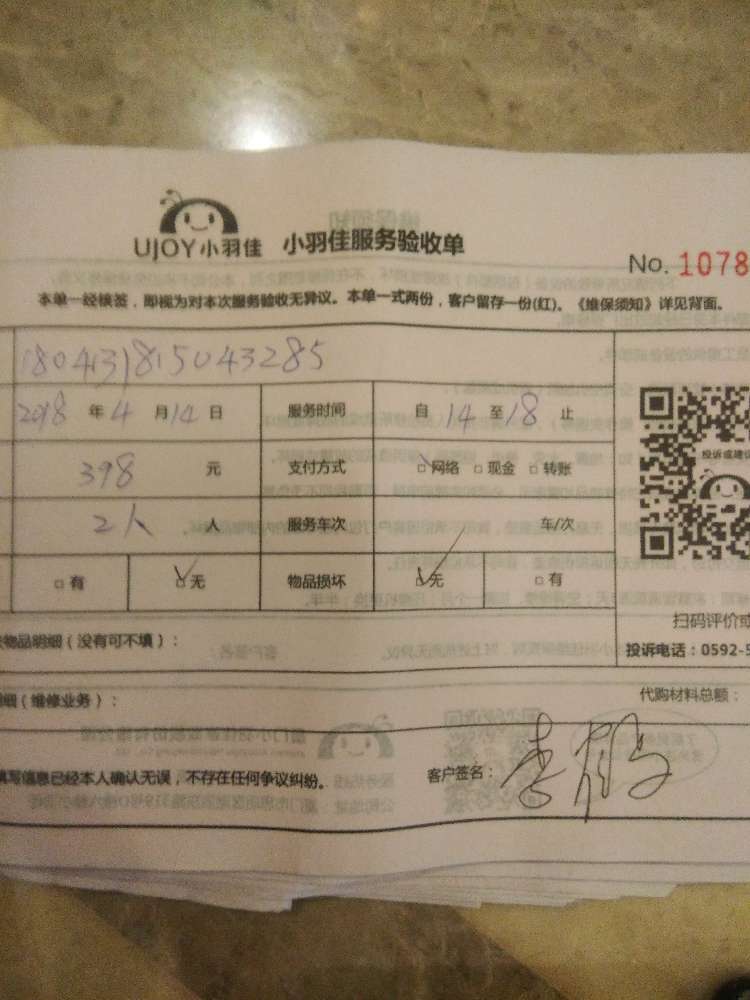 UJOY小羽佳 小羽佳服务验收单
No. 1078
本单一经核签，即视为对本次服务验收无异议。本单一式两份，客户留存一份(红)。《维保须知》详见背面。
1804131815043285
2018 年 4 月 14 日 服务时间 自 14 至 18 止
398 元 支付方式 网络 现金 转账
投诉或建议
2人 人 服务车次 车/次
有 无 物品损坏 无 有
扫码评价或
物品明细（没有可不填）：
投诉电话：0592-5
明细（维修业务）：
代购材料总额：
填写信息已经本人确认无误，不存在任何争议纠纷。 客户签名：